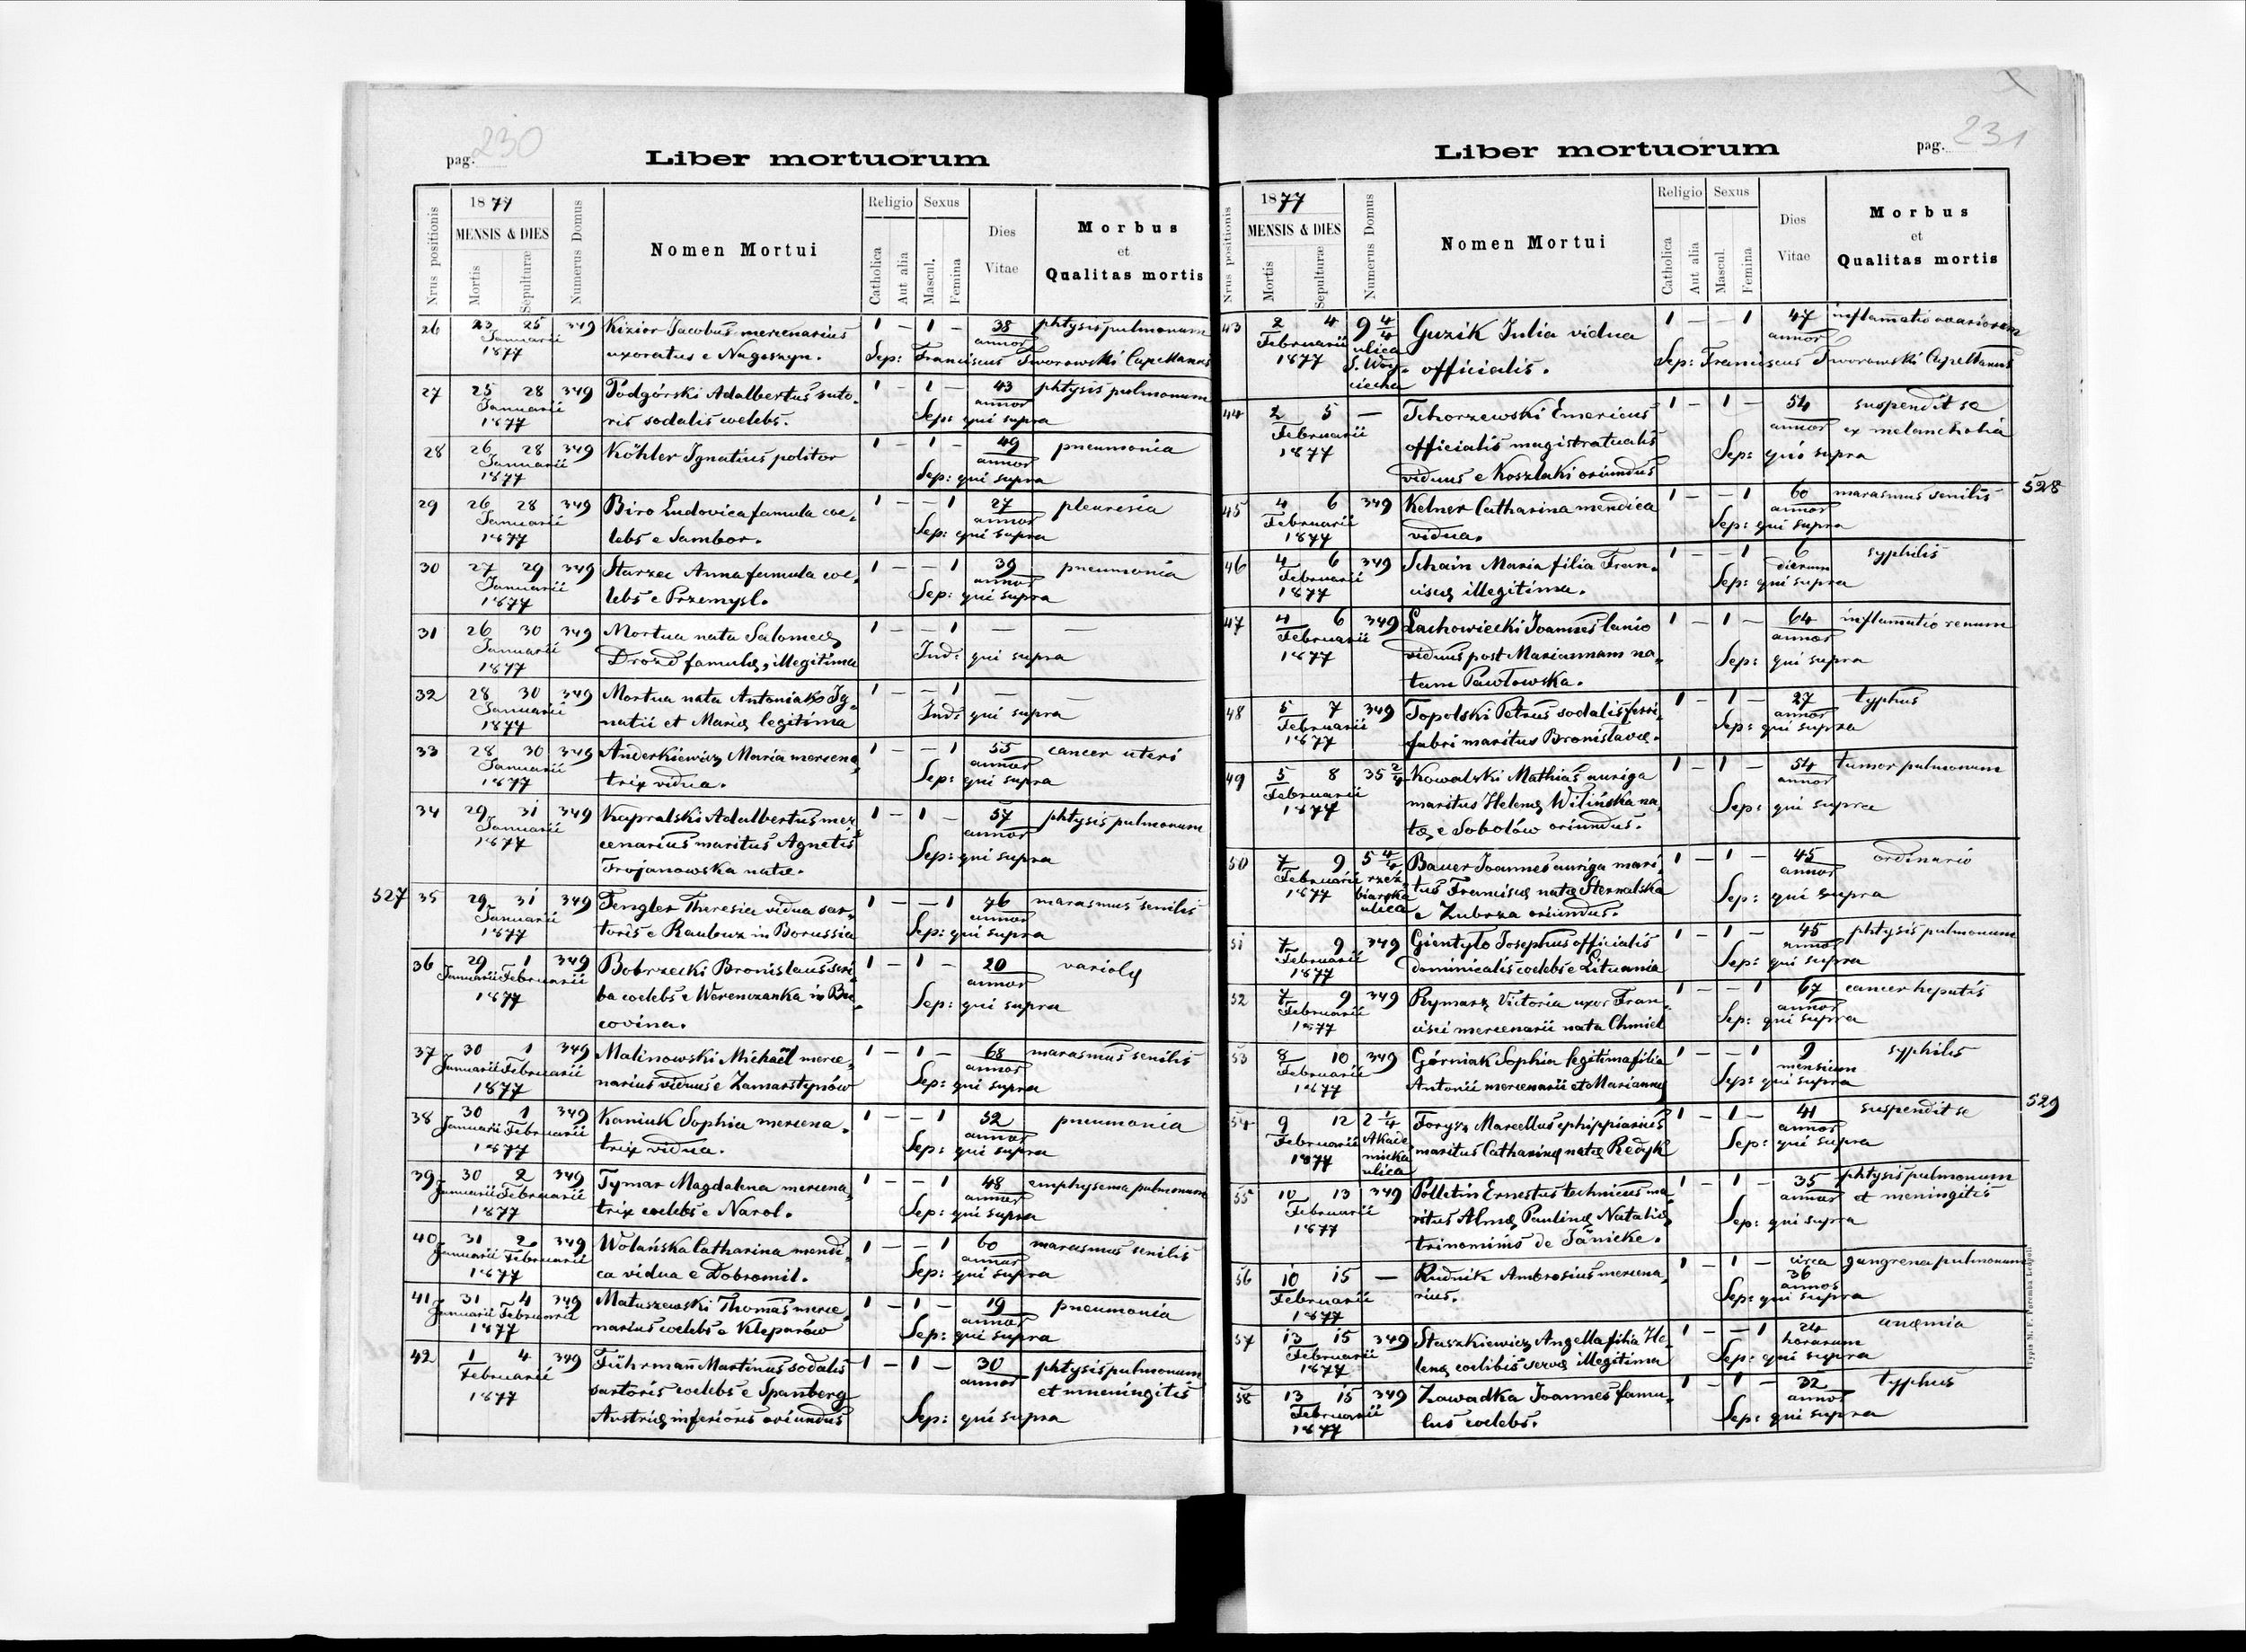 pag. 230
Liber mortuorum
Nrus positionis
1877
MENSIS & DIES
Mortis
Sepulturæ
Numerus Domus
Nomen Mortui
Religio
Catholica
Aut alia
Sexus
Mascul.
Femina
Dies
Vitae
Morbus
et
Qualitas mortis
26 23 25 349 Kizior Jacobus mercenarius 1 — 1 — 38 phtysis pulmonum
Januarii annor
1877 uxoratus e Nagoszyn. Sep: Franciscus Tworowski Capellanus
27 25 28 349 Podgórski Adalbertus suto- 1 — 1 — 43 phtysis pulmonum
Januarii annor
1877 ris sodalis coelebs. Sep: qui supra
28 26 28 349 Köhler Ignatius politor 1 — 1 — 49 pneumonia
Januarii annor
1877 Sep: qui supra
29 26 28 349 Biro Ludovica famula coe- 1 — — 1 27 pleuresia
Januarii annor
1877 lebs e Sambor. Sep: qui supra
30 27 29 349 Starzec Anna famula coe- 1 — — 1 39 pneumonia
Januarii annor
1877 lebs e Przemysl. Sep: qui supra
31 26 30 349 Mortua nata Salomeæ 1 — — 1 — —
Januarii
1877 Drozd famulæ, illegitima Ind: qui supra
32 28 30 349 Mortua nata Antoniak Ig- 1 — — 1 — —
Januarii
1877 natii et Mariæ legitima Ind: qui supra
33 28 30 349 Anderkiewicz Maria mercena- 1 — — 1 55 cancer uteri
Januarii annor
1877 trix vidua. Sep: qui supra
34 29 31 349 Kapralski Adalbertus mer- 1 — 1 — 57 phtysis pulmonum
Januarii annor
1877 cenarius maritus Agnetis Sep: qui supra
Trojanowska natæ.
527 35 29 31 349 Fengler Theresia vidua sar- 1 — — 1 76 marasmus senilis
Januarii annor
1877 toris e Raubuz in Borussia Sep: qui supra
36 29 1 349 Bobrzecki Bronislaus scri- 1 — 1 — 20 variolæ
Januarii Februarii annor
1877 ba coelebs e Werenczanka in Bu- Sep: qui supra
covina.
37 30 1 349 Malinowski Michaël merce- 1 — 1 — 68 marasmus senilis
Januarii Februarii annor
1877 narius viduus e Zamarstynów Sep: qui supra
38 30 1 349 Kaniuk Sophia mercena- 1 — — 1 52 pneumonia
Januarii Februarii annor
1877 trix vidua. Sep: qui supra
39 30 2 349 Tymar Magdalena mercena- 1 — — 1 48 emphysema pulmonum
Januarii Februarii annor
1877 trix coelebs e Narol. Sep: qui supra
40 31 2 349 Wolańska Catharina mendi- 1 — — 1 60 marasmus senilis
Januarii Februarii annor
1877 ca vidua e Dobromil. Sep: qui supra
41 31 4 349 Matuszewski Thomas merce- 1 — 1 — 19 pneumonia
Januarii Februarii annor
1877 narius coelebs e Kleparów Sep: qui supra
42 1 4 349 Führmañ Martinus sodalis 1 — 1 — 30 phtysis pulmonum
Februarii annor
1877 sartoris coelebs e Spanberg et mneningitis
Austriæ inferioris oriundus Sep: qui supra
Liber mortuorum
pag. 231
Nrus positionis
1877
MENSIS & DIES
Mortis
Sepulturæ
Numerus Domus
Nomen Mortui
Religio
Catholica
Aut alia
Sexus
Mascul.
Femina
Dies
Vitae
Morbus
et
Qualitas mortis
43 2 4 9 4/4 Guzik Julia vidua 1 — — 1 47 inflamatio ovariorum
Februarii ulica annor
1877 S. Woy- officialis. Sep: Franciscus Tworowski Capellanus
ciecha
44 2 5 — Tchorzewski Emericus 1 — 1 — 54 suspendit se
Februarii officialis magistratualis annor ex melancholia
1877 viduus e Koszlaki oriundus Sep: qui supra
45 4 6 349 Kelner Catharina mendica 1 — — 1 60 marasmus senilis 528
Februarii annor
1877 vidua. Sep: qui supra
46 4 6 349 Schain Maria filia Fran- 1 — — 1 6 syphilis
Februarii dierum
1877 ciscæ illegitima. Sep: qui supra
47 4 6 349 Lachowiecki Joannes lanio 1 — 1 — 64 inflamatio renum
Februarii annor
1877 viduus post Mariannam na- Sep: qui supra
tam Pawłowska.
48 5 7 349 Topolski Petrus sodalis ferri- 1 — 1 — 27 typhus
Februarii annor
1877 fabri maritus Bronislavæ. Sep: qui supra
49 5 8 35 2/4 Kowalski Mathias auriga 1 — 1 — 54 tumor pulmonum
Februarii annor
1877 maritus Helenæ Wilińska na- Sep: qui supra
tæ e Sobolów oriundus.
50 7 9 5 4/4 Bauer Joannes auriga mari- 1 — 1 — 45 ordinario
Februarii rzeź- annor
1877 biarska tus Franciscæ natæ Stermalska Sep: qui supra
ulica e Zubrza oriundus.
51 7 9 349 Gientyło Josephus officialis 1 — 1 — 45 phtysis pulmonum
Februarii annor
1877 dominicalis coelebs e Lituania Sep: qui supra
52 7 9 349 Rymarz Victoria uxor Fran- 1 — — 1 67 cancer hepatis
Februarii annor
1877 cisci mercenarii nata Chmiel Sep: qui supra
53 8 10 349 Górniak Sophia legitima filia 1 — — 1 9 syphilis
Februarii mensium
1877 Antonii mercenarii et Mariannæ Sep: qui supra
54 9 12 2 1/4 Forysz Marcellus ephippiarius 1 — 1 — 41 suspendit se 529
Februarii Akade- annor
1877 micka maritus Catharinæ natæ Redyk Sep: qui supra
ulica
55 10 13 349 Polletin Ernestus technicus ma- 1 — 1 — 35 phtysis pulmonum
Februarii annor et meningitis
1877 ritus Almæ Paulinæ Nataliæ Sep: qui supra
trinominis de Jänicke.
56 10 15 — Rudnik Ambrosius mercena- 1 — 1 — circa gangrena pulmonum
Februarii 36
1877 rius. annos
Sep: qui supra
57 13 15 349 Staszkiewicz Angella filia He- 1 — — 1 24 anæmia
Februarii horarum
1877 lenæ coelibis servæ illegitima Sep: qui supra
58 13 15 349 Zawadka Joannes famu- 1 — 1 — 32 typhus
Februarii annor
1877 lus coelebs. Sep: qui supra
Typis M. F. Poremba Leopoli